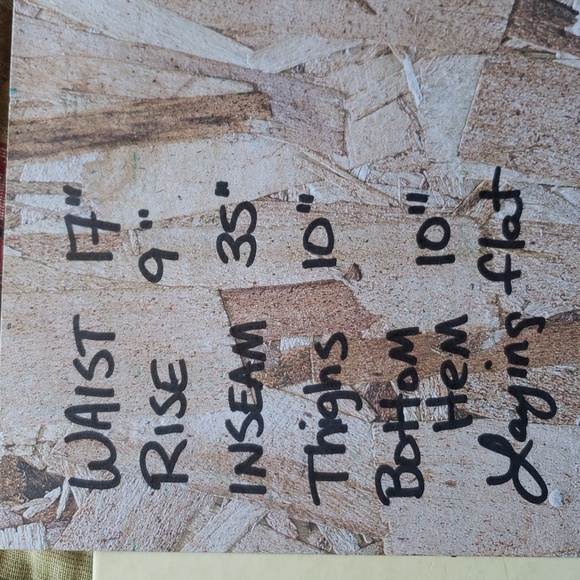 WAIST 17"
RISE 9"
INSEAM 35"
Thighs 10"
Bottom
Hem 10"
Laying flat